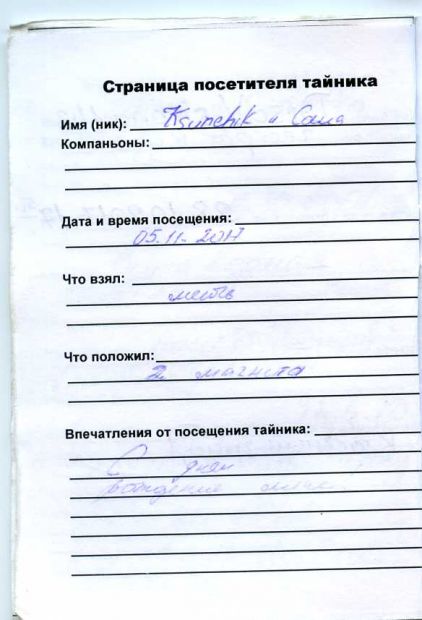 Страница посетителя тайника
Имя (ник): Ksunchik и Саша
Компаньоны:
Дата и время посещения:
05.11.2017
Что взял:
Что положил:
2 магнита
Впечатления от посещения тайника:
С днем
рождения